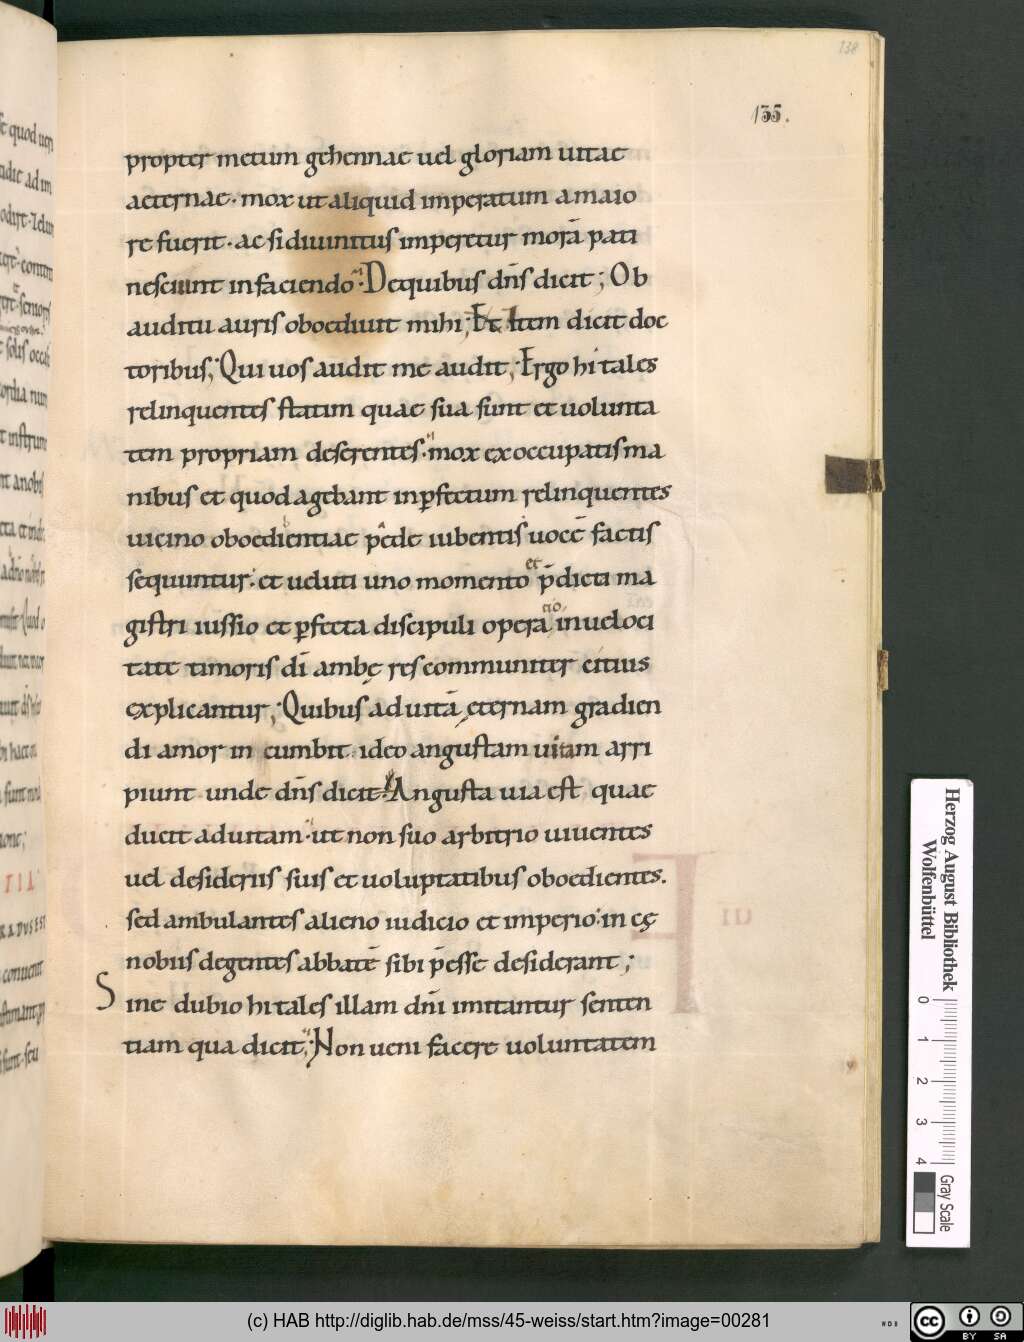 138
135.
propter metum gehennae uel gloriam uitae
aeternae. mox ut aliquid imperatum a maio
re fuerit. ac si diuinitus imperetur morā pati
nesciunt in faciendo; De quibus dn̄s dicit; Ob
auditu auris oboediuit mihi; Et Item dicit doc
toribus; Qui uos audit me audit; Ergo hi tales
relinquentes statim quae sua sunt et uolunta
tem propriam deserentes. mox exoccupatis ma
nibus et quod agebant inp̱fectum relinquentes
uicino oboedientiae pede iubentis uocē factis
sequuntur: et ueluti uno momento p̄dicti ma
gistri iussio et p̱fecta discipuli opera in ueloci
tate timoris dī ambę res communiter citius
explicantur; Quibus ad uitā ęternam gradien
di amor in cumbit. ideo angustam uitam arri
piunt unde dn̄s dicit: Angusta uia est quae
ducit ad uitam. ut non suo arbitrio uiuentes
uel desideriis suis et uoluptatibus oboedientes.
sed ambulantes alieno iudicio et imperio: in cę
nobiis degentes abbatē sibi p̄esse desiderant;
Sine dubio hi tales illam dn̄i imitantur senten
tiam qua dicit; Non ueni facere uoluntatem
Herzog August Bibliothek
Wolfenbüttel
0 1 2 3 4
Gray Scale
(c) HAB http://diglib.hab.de/mss/45-weiss/start.htm?image=00281
cc BY SA